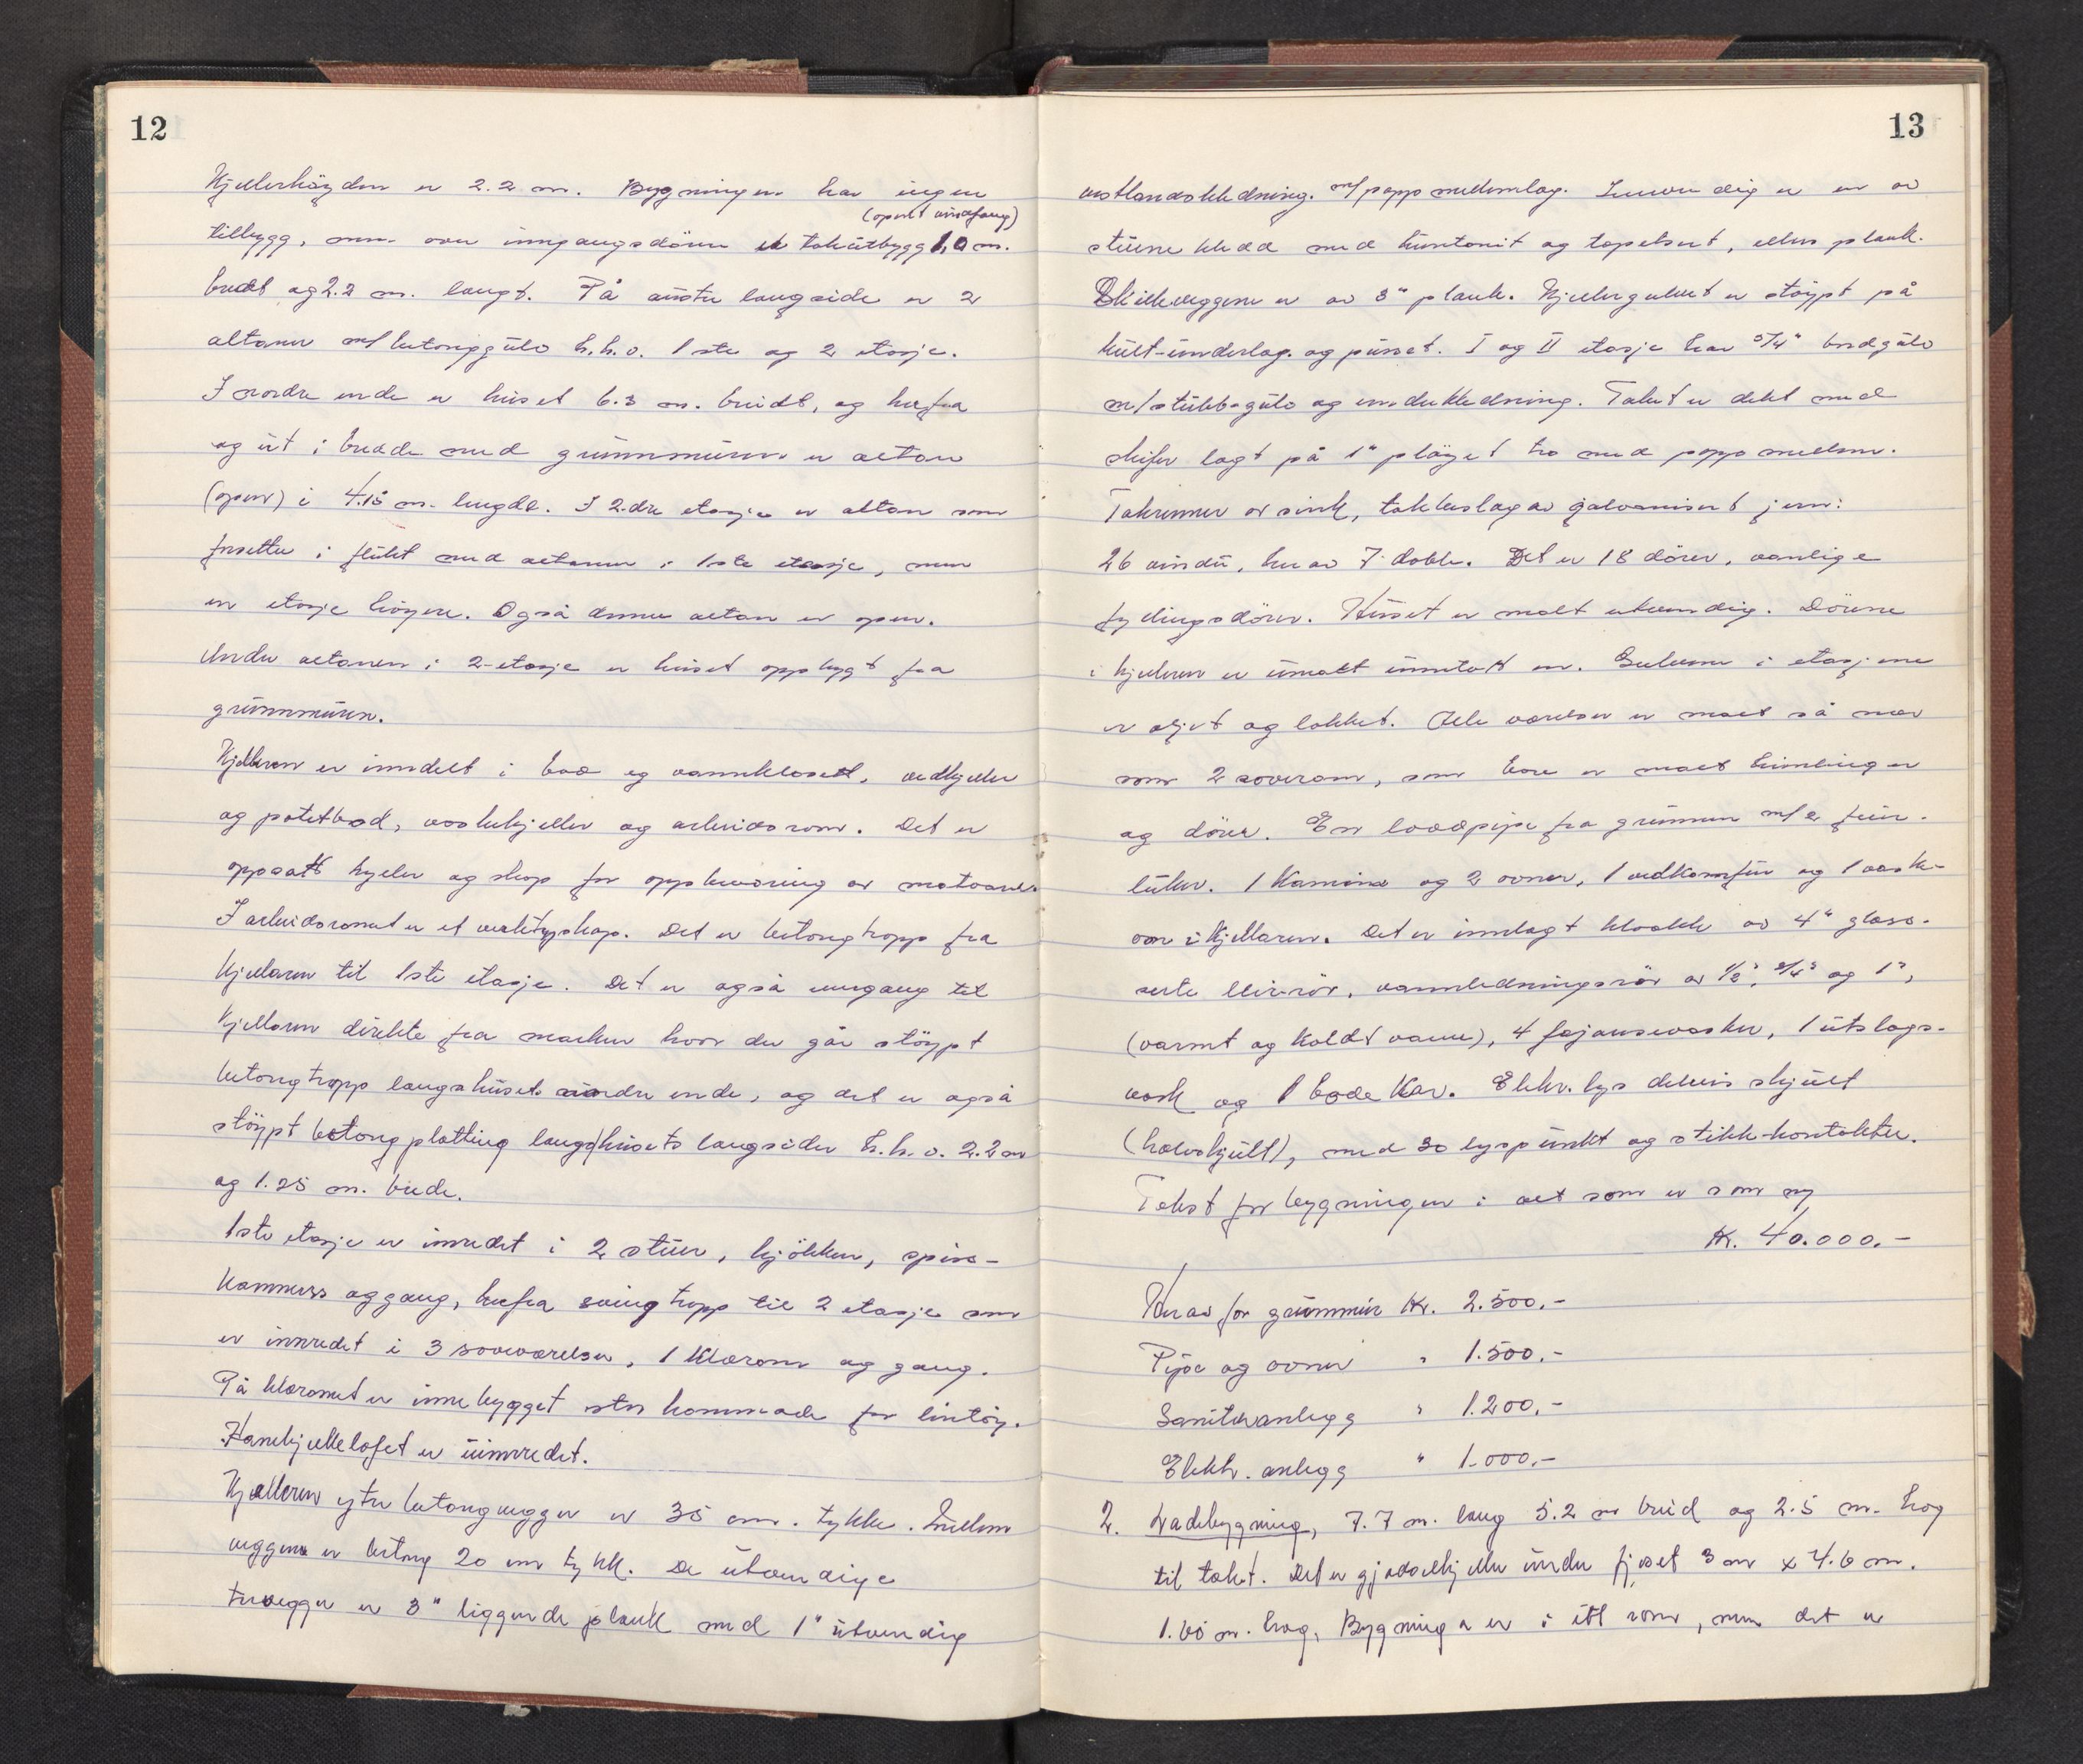 12
Kjellerhøyden er 2.2 m. Bygningen har ingen
(opent vindfang)
tilbygg, men over inngangsdøren et takutbygg 1,0 m.
bredt og 2.2 m. langt. På austre langside er 2
altaner m/ betonggulv h.h.v. 1ste og 2 etasje.
I nordre ende er huset 6.3 m. breidt, og herfra
og ut i bredde med grunnmuren er altan
(open) i 4.15 m. lengde. I 2.dre etasje er altan som
fortsetter i flukt med altanen i 1ste etasje, men
en etasje høyere. Også denne altan er open.
Under altanen i 2-etasje er huset oppbygt fra
grunnmuren.
Kjelleren er inndelt i bad og vannklosett, vedkjeller
og potetbod, vaskekjeller og arbeidsrom. Det er
oppsatt hyller og skap for oppbevaring av matvarer.
I arbeidsromet er et verktøyskap. Det er betongtrapp fra
kjellaren til 1ste etasje. Det er også inngang til
kjellaren direkte fra marken hvor der går støypt
betongtrapp langs husets nordre ende, og det er også
støypt betongplatting langs husets langsider h.h.v. 2.2 m
og 1.25 m. breide.
1ste etasje er inredet i 2 stuer, kjøkken, spise-
kammers og gang, herfra svingtrapp til 2 etasje som
er innredet i 3 soveværelser, 1 klærom og gang.
På klæromet er innebygget stor kommode for lintøy.
Hanebjelkeloftet er uinnredet.
Kjelleren ytre betongvegger er 35 cm. tykke. Mellom
veggene er betong 20 cm tykk. De utvendige
trevegger er 3" liggende plank med 1" utvendig
13
vestlandskledning. m/papp mellomlag. Innvendig er en av
stuene kledd med huntonit og tapetsert, ellers plank.
Skilleveggene er av 3" plank. Kjellergulvet er støypt på
kult-underlag og pusset. I og II etasje har 5/4" bordgulv
m/stubbegulv og underkledning. Taket er dekt med
skifer lagt på 1" pløyet tro med papp mellom.
Takrenner av sink, takbeslag av galvanisert jern:
26 vindu, herav 7 doble. Det er 18 dører, vanlige
fyllingsdører. Huset er malt utvendig. Dørene
i kjelleren er umalt unntatt en. Gulvene i etasjene
er oljet og lakket. Alle værelser er malt så nær
som 2 soverom, som bare er malt himlinger
og dører. En loddpipe fra grunnen m/2 feie-
luker. 1 Kamin og 2 ovner, 1 vedkomfur og 1 vaske-
ovn i kjellaren. Det er innlagt kloakk av 4" glass-
serte leirrør, vannledningsrør av 1/2", 3/4" og 1",
(varmt og koldt vann), 4 fajansevasker, 1 utslags-
vask og 1 badekar. Elektr. lys delvis skjult
(halvskjult), med 30 lyspunkt og stikk-kontakter.
Takst for bygningen i alt som er som ny
Kr. 40.000.-
Herav for grunnmur Kr. 2.500.-
Pipe og ovner " 1.500.-
Sanitæranlegg " 1.200.-
Elektr. anlegg " 1.000.-
2. Ladebygning, 7.7 m. lang 5.2 m breid og 2.5 m. høg
til taket. Det er gjødselkjeller under fjøset 3 m x 4.6 m.
1.60 m. høg. Bygningen er i ett rom, men det er